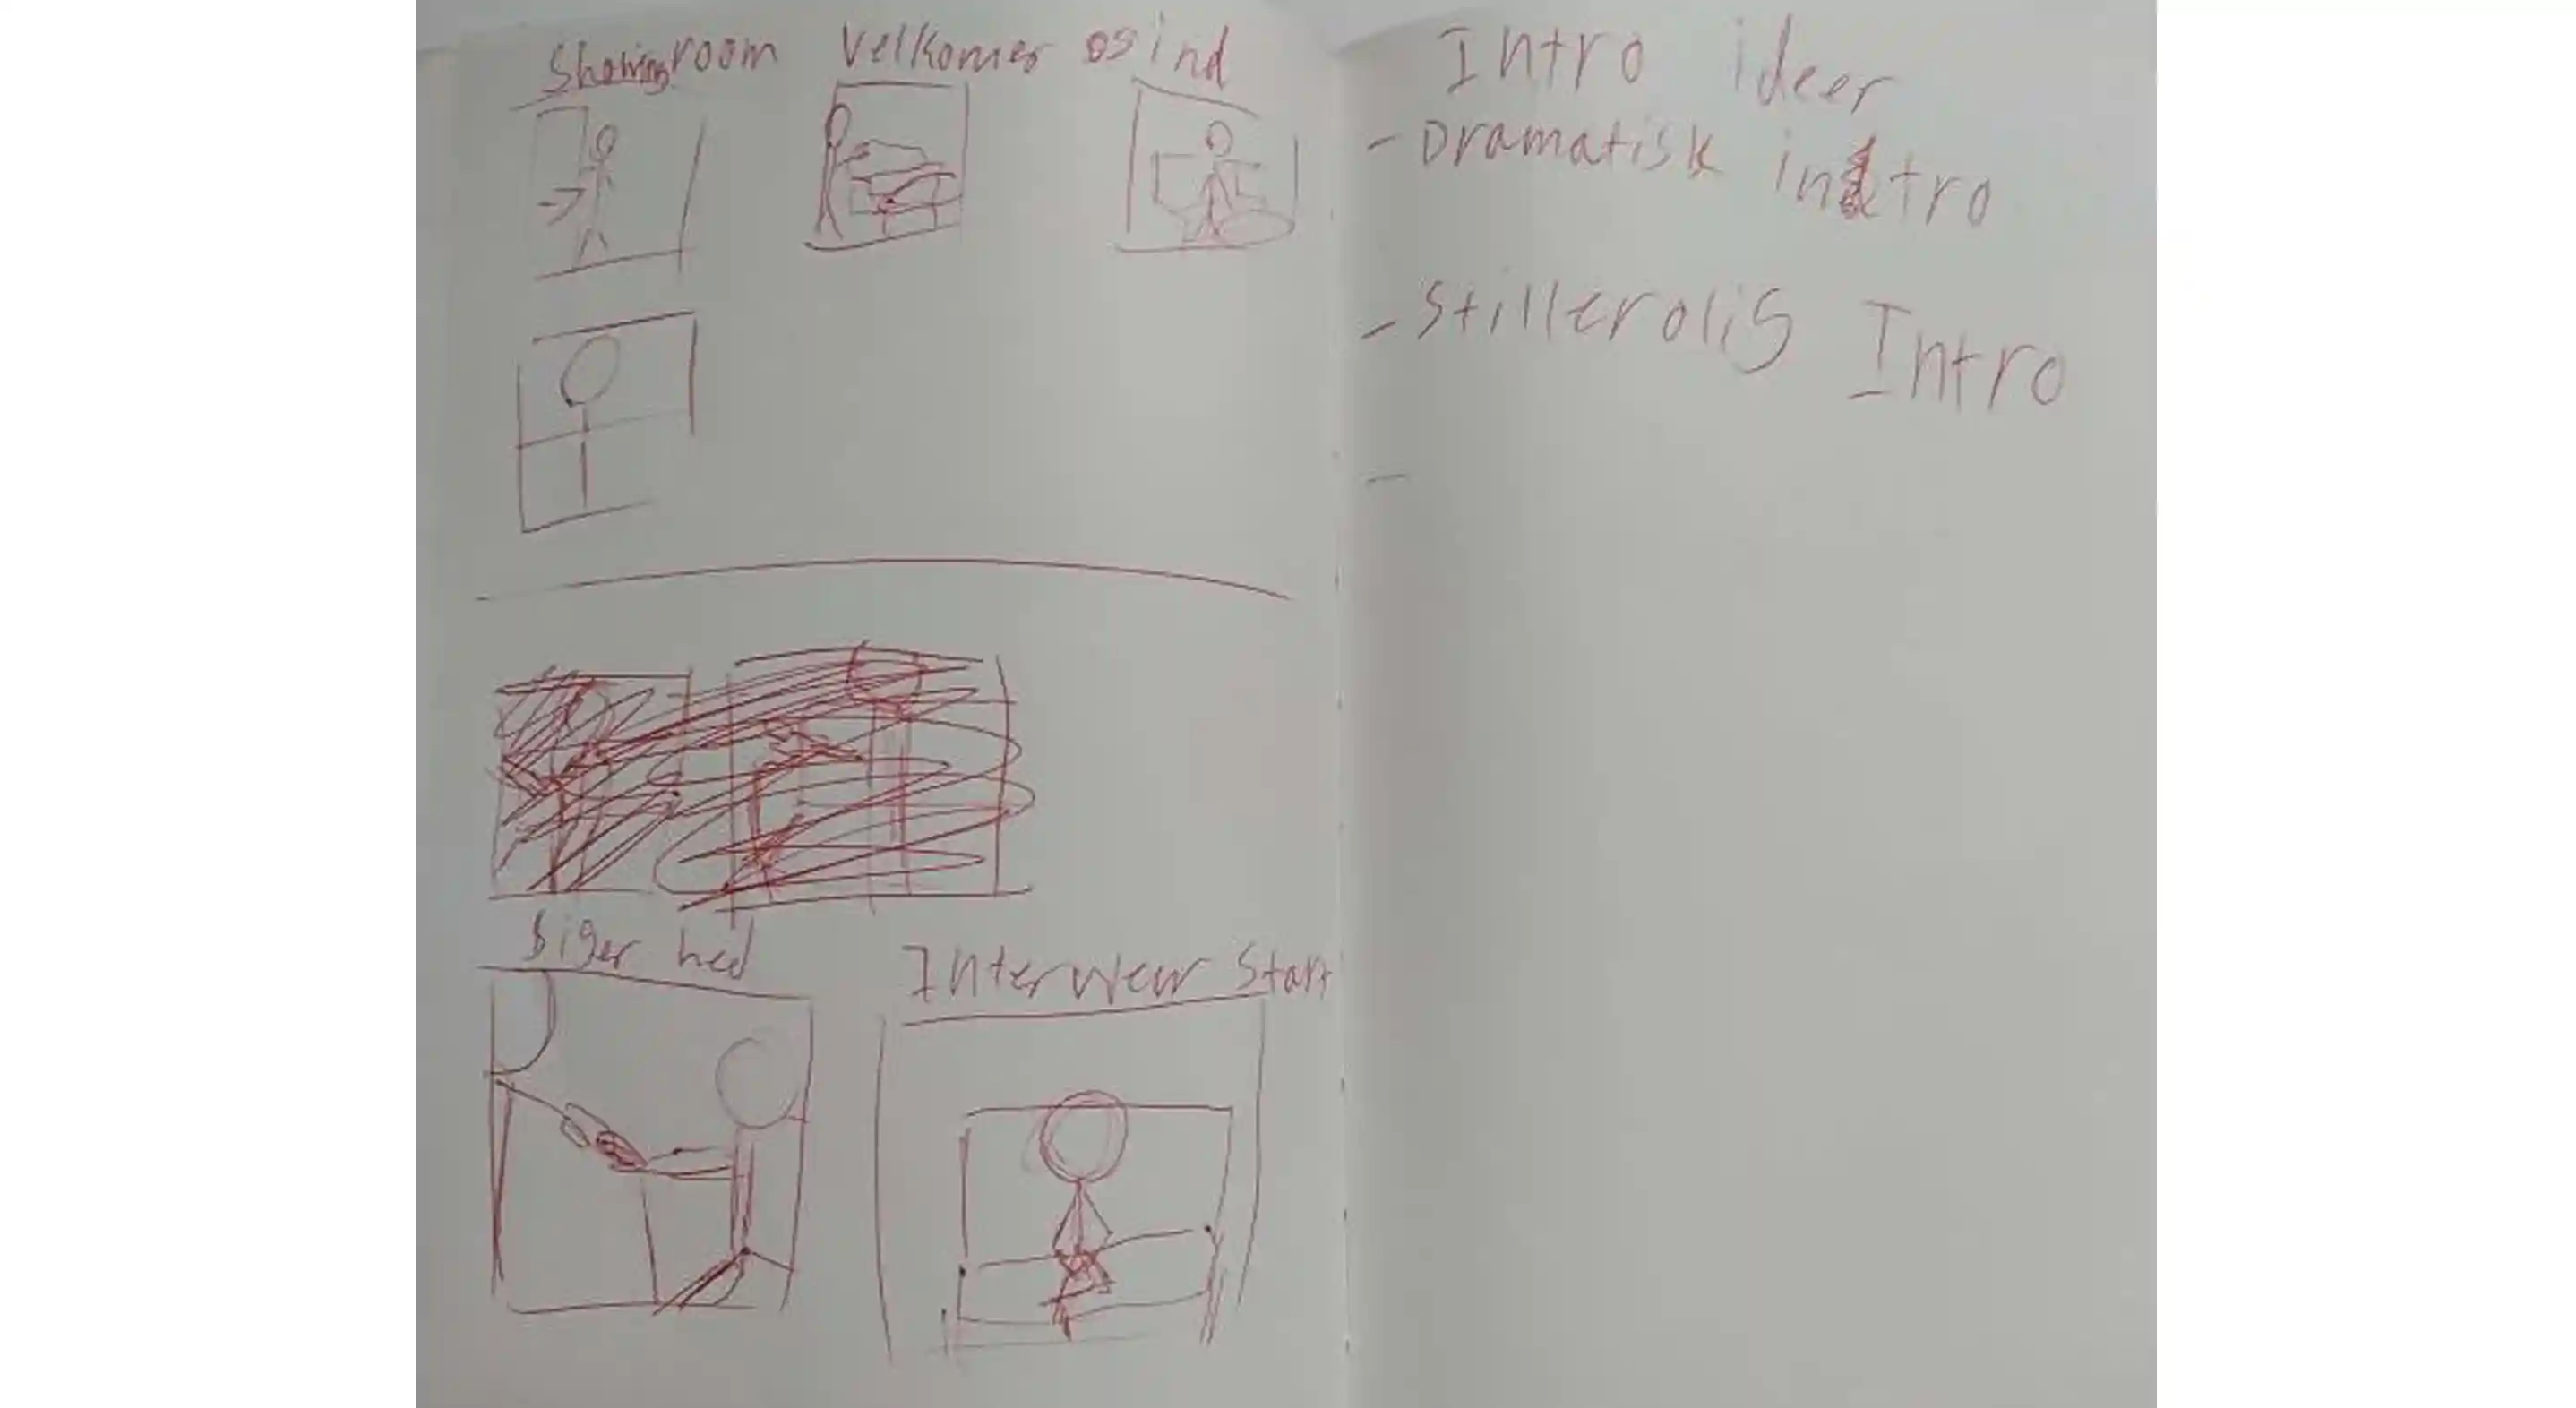 Showingroom Velkomer os ind
Siger hed
Interwewr Start
Intro ideer
- Dramatisk intro
- Stillerolig Intro
-